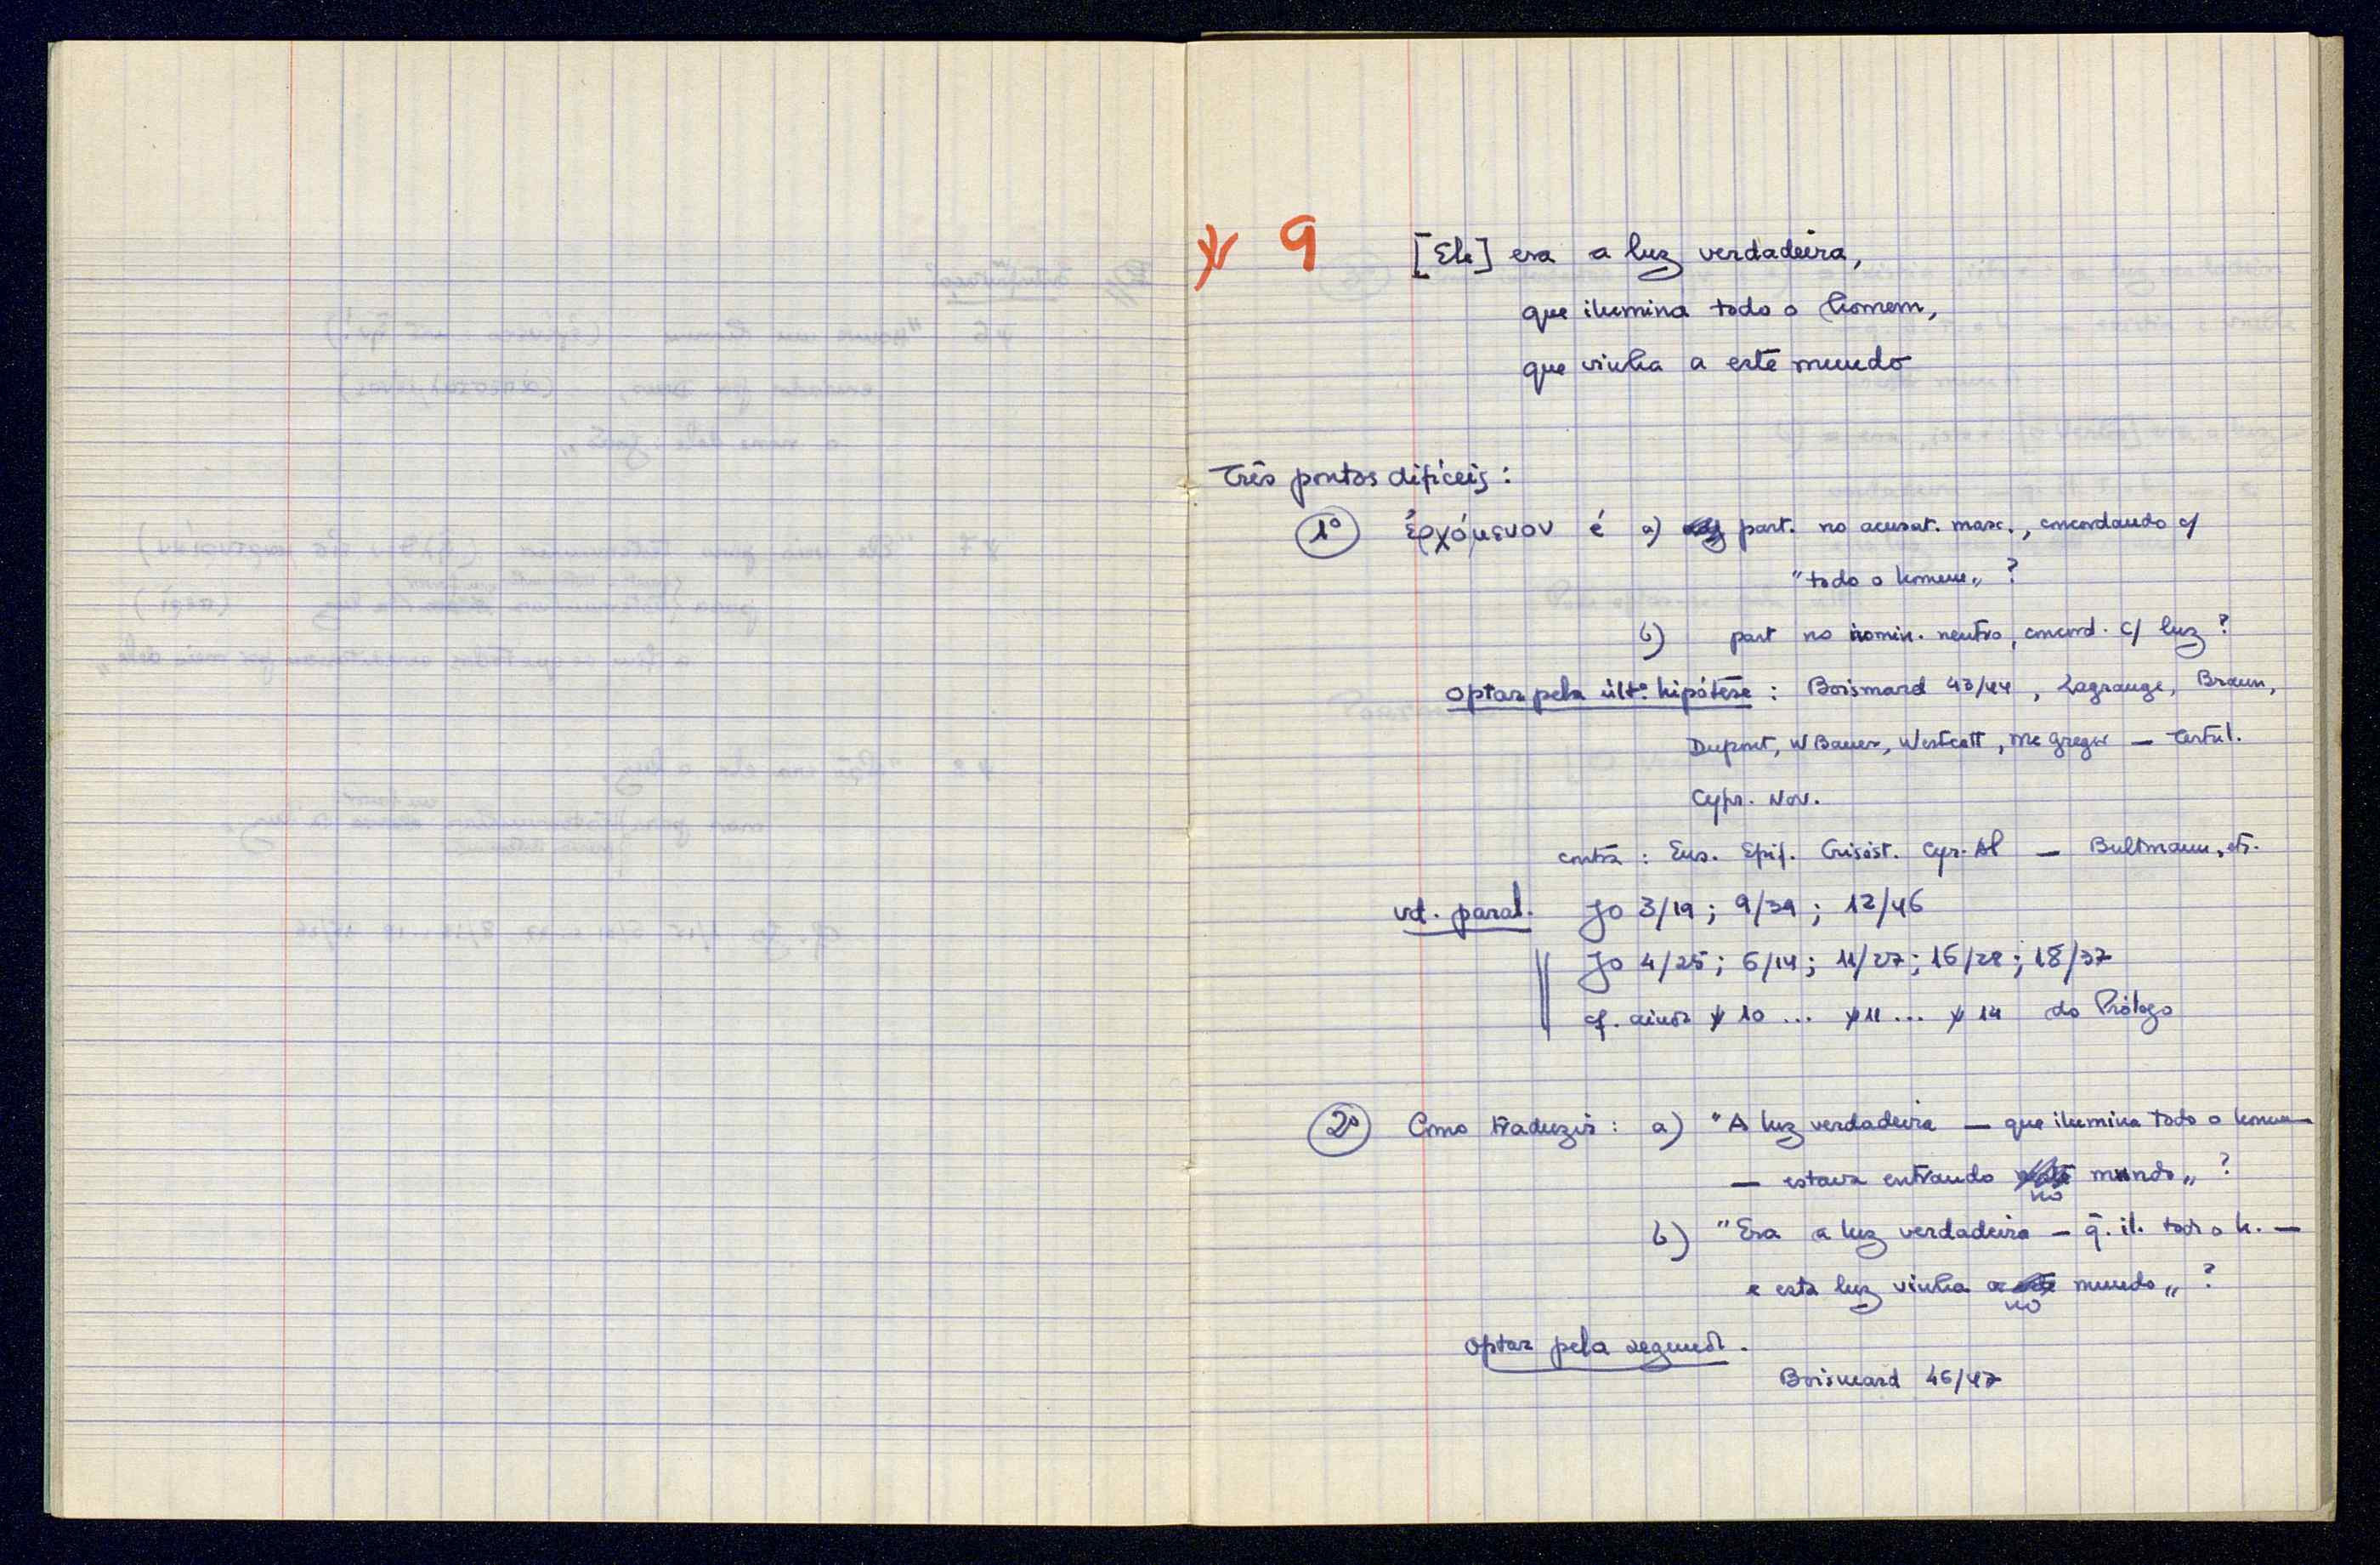 ℣ 9 [Ele] era a luz verdadeira,
que ilumina todo o homem,
que vinha a este mundo
Três pontos difíceis:
1º ἐρχόμενον é a) part. no acusat. masc., concordando c/
"todo o homem„ ?
b) part no nomin. neutro, concord. c/ luz ?
optar pela últª hipótese : Boismard 43/44, Lagrange, Braun,
Dupont, W Bauer, Westcott, Mc Gregor — Tertul.
Cypr. Nov.
contra : Eus. Epif. Crisóst. Cyr. Al — Bultmann, etc.
vd. paral. Jo 3/19 ; 9/39 ; 12/46
Jo 4/25 ; 6/14 ; 11/27 ; 16/28 ; 18/37
cf. ainda ℣ 10 ... ℣ 11 ... ℣ 14 do Prólogo
2º Como traduzir : a) "A luz verdadeira — que ilumina todo o homem
— estava entrando no mundo„ ?
b) "Era a luz verdadeira — q̃. il. todo o h. —
e esta luz vinha no mundo„ ?
optar pela segunda.
Boismard 46/47